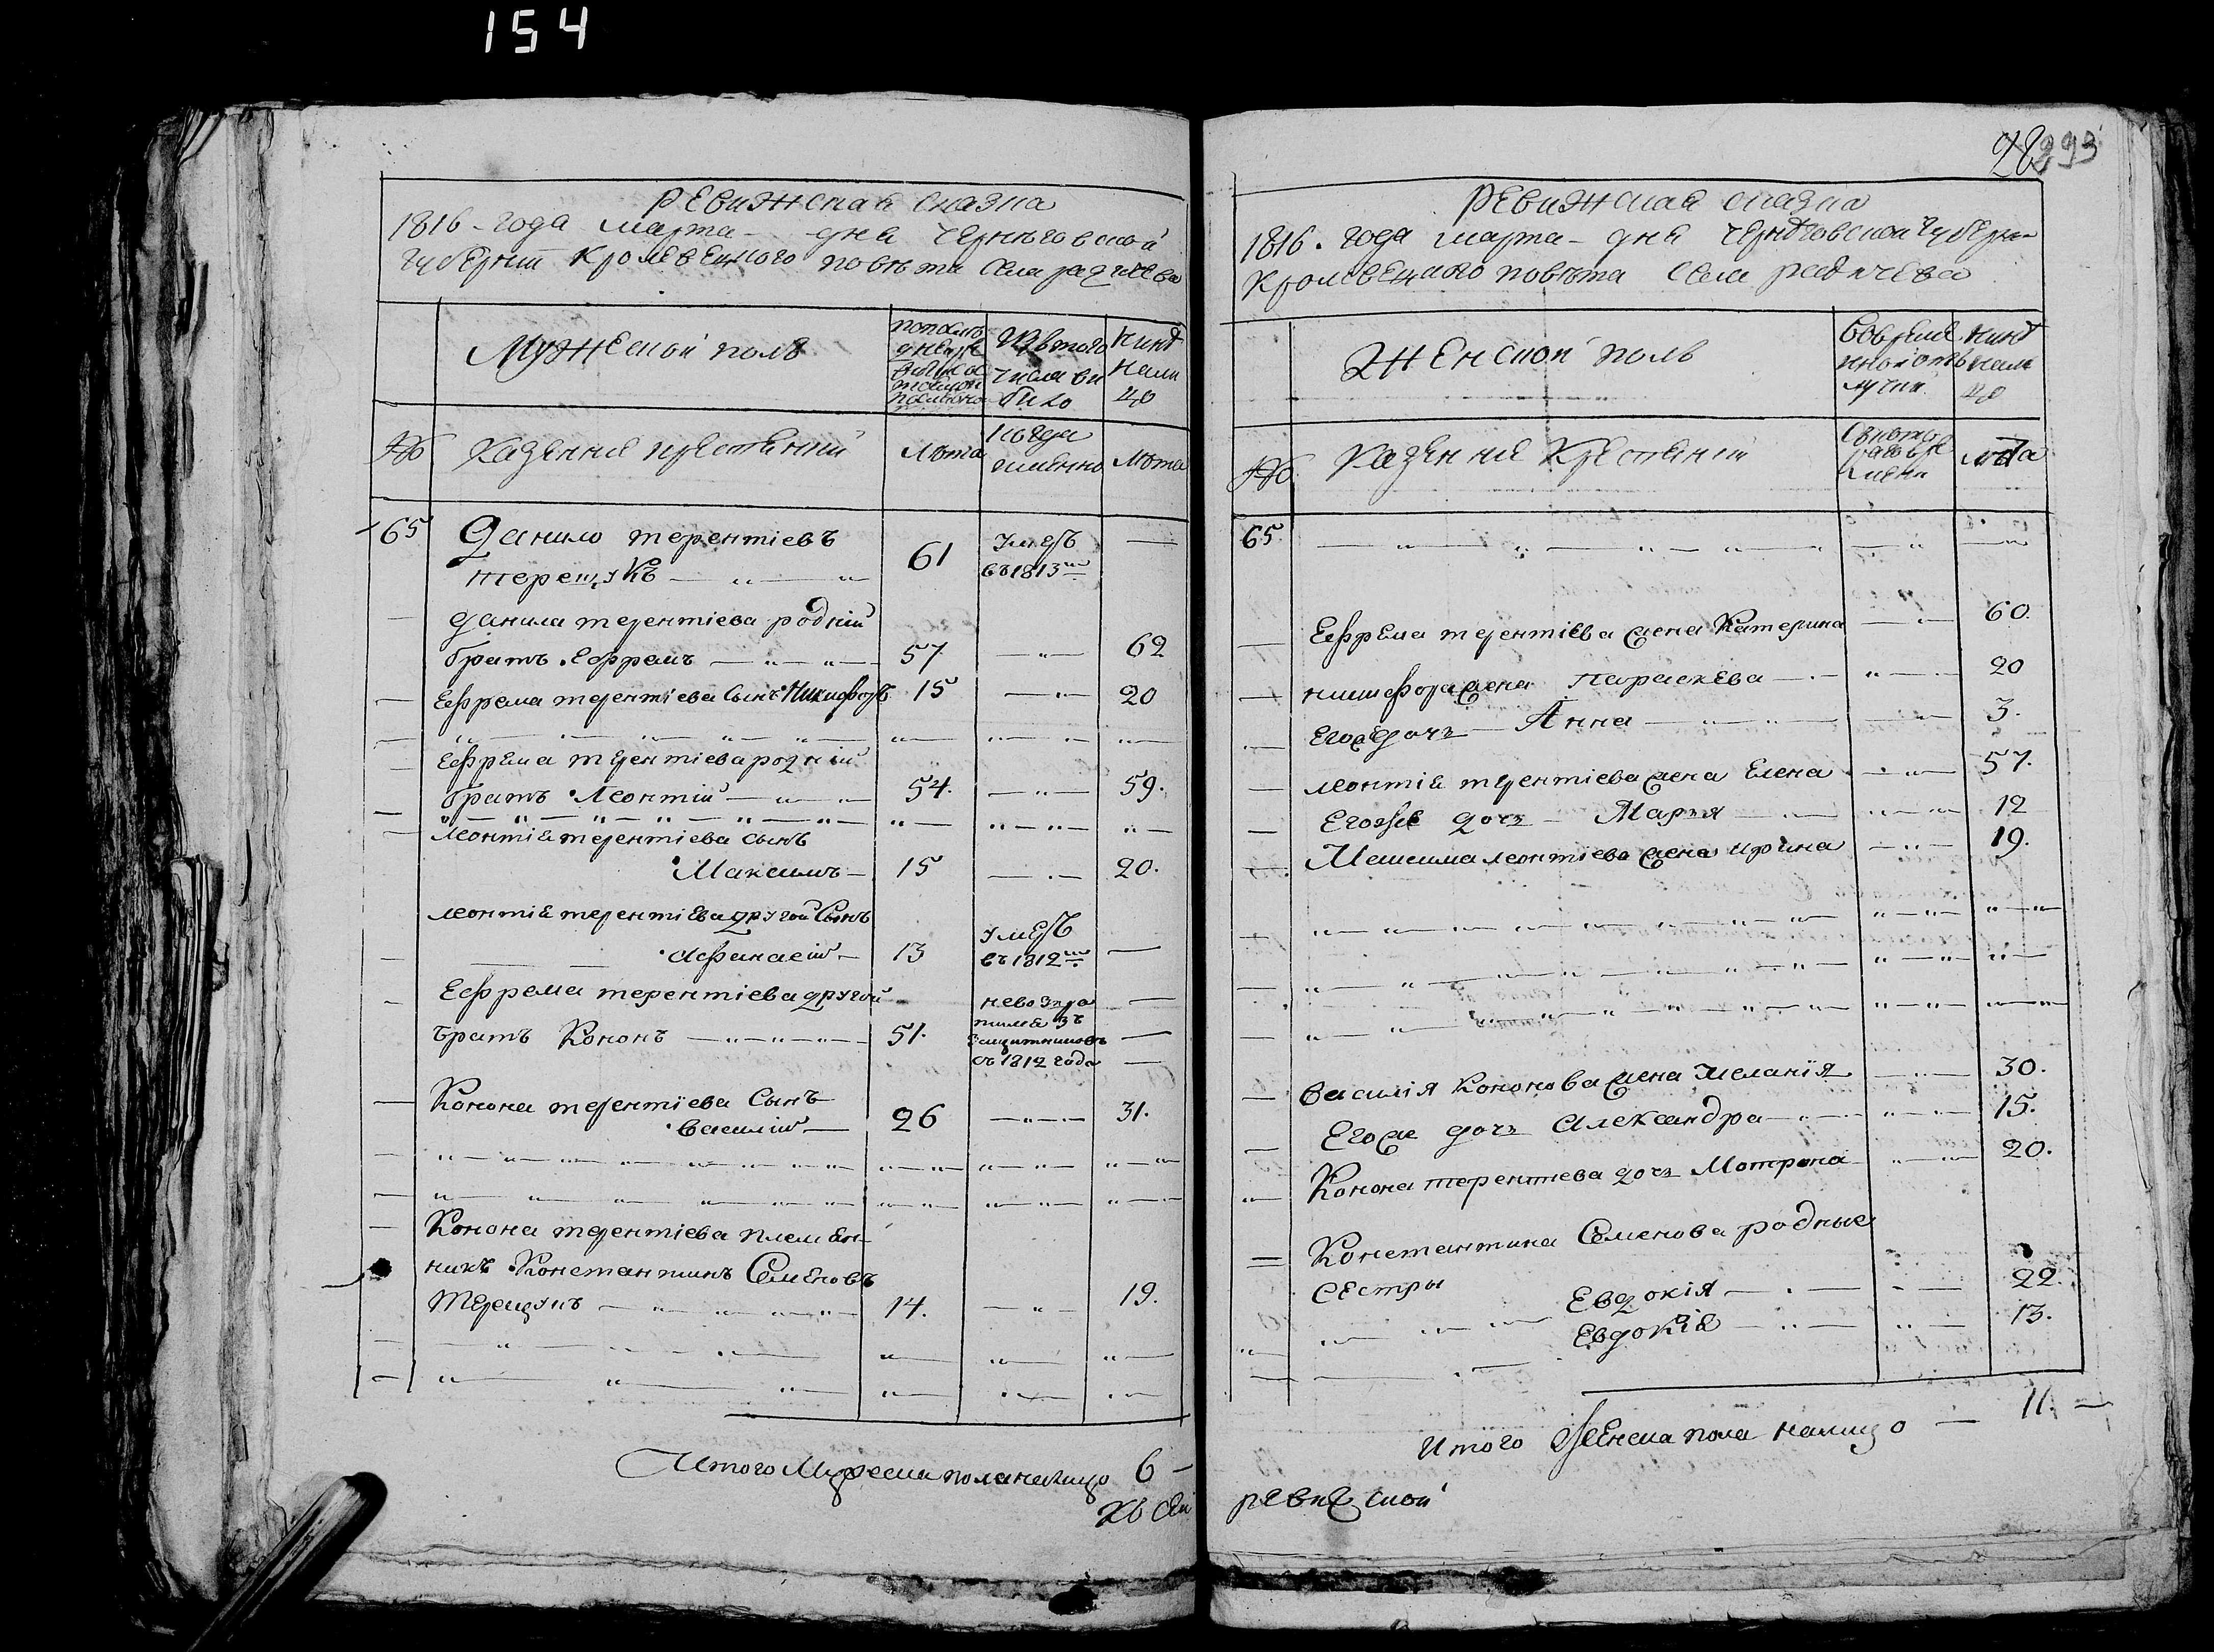 154
293
Ревижская сказка
1816 - года марта - дня Черниговской
Губернии Кролевецкого повѣта Села радичева
Мужеской полъ
Изъ того числа вибило
Нинѣ нали цо
№
Казенние крестянии
Лѣта
когда именно
Лѣта
65 Данило терентіевъ
терещукъ 61 Умеръ въ 1813м —
Данила терентіева родній
братъ Ефремъ 57 62
Ефрема терентіева Сынъ Никифоръ 15 20
Ефрема терентіева родній
братъ Леонтий 54. 59.
Леонтія терентіева сынъ
Максимъ 15 20.
леонтія терентіева другой Сынъ
Афанасій 13 Умеръ въ 1812м —
Ефрема терентіева другой
братъ Кононъ 51. невозвра тился зъ защитниковъ съ 1812 года —
Конона терентіева Сынъ
Василій 26 31.
Конона терентіева племен
никъ Константинъ Семеновъ
Терещукъ 14. 19.
Итого Мужеска пола налицо 6 —
Къ сей
Ревижская сказка
1816. года марта - дня Черниговской Губерни
Кролевецкого повѣта Села радичева
Женской полъ
Во времен ной отлучки
Нинѣ нали цо
№
Казенние Крестянии
лѣта
65
Ефрема терентіева жена Катерина 60.
никифора жена Параскева 20
Егоже дочь Анна 3.
леонтія терентіева жена Елена 57.
Егоже дочь Марья 12
Максима леонтіева жена ирина 19.
Василія Кононова жена Меланія 30.
Егоже дочь Александра 15.
Конона терентиева дочь Мотрона 20.
Констянтина Семенова родные
Сестры Евдокія 22.
Евдокія 13.
Итого женска пола налицо — 11. —
ревижской